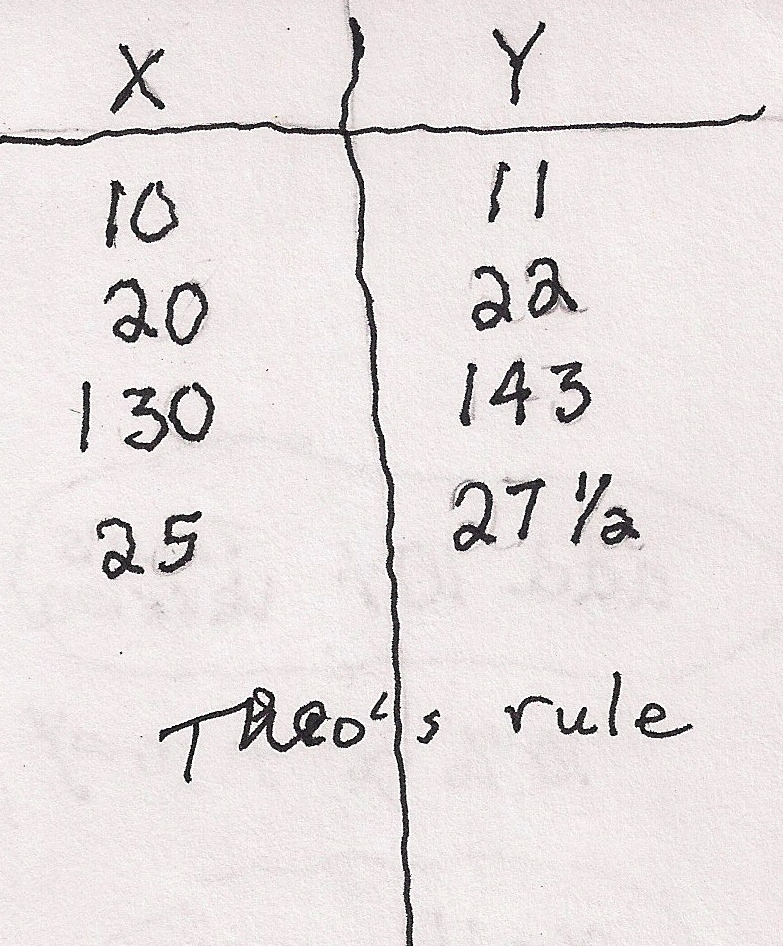 X Y
10 11
20 22
130 143
25 27 ½
Theo's rule